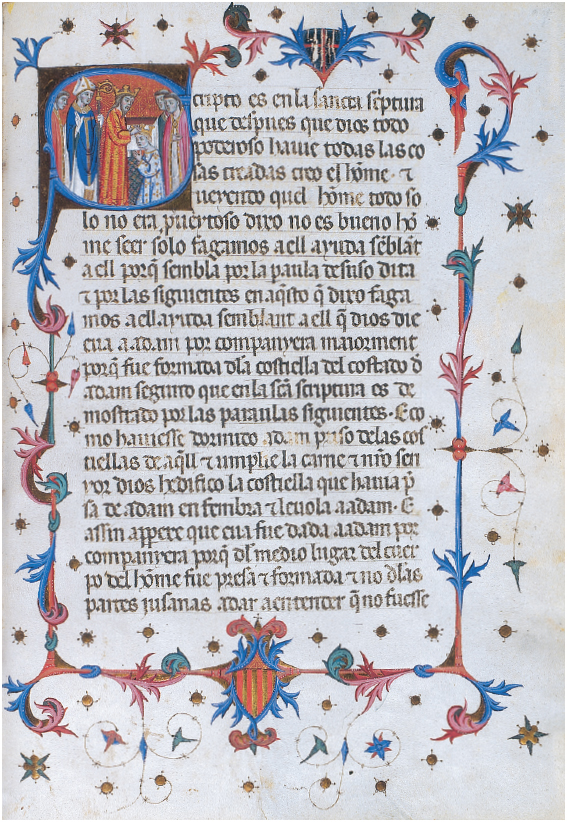 Scripto es en la sancta sc̄ptura
que despues que dios todo
poderoso hauie todas las co
sas creadas creo el hōme · ⁊
veyendo quel hōme todo so
lo no era puertoso dixo no es bueno hō
me seer solo fagamos a ell ayuda sēblāt
a ell porq̄ sembla por la paula desuso dita
⁊ por las siguientes en aq̄sto q̄ dixo faga
mos a ell ayuda semblant a ell q̄ dios die
eua a adam por companyera maiorment
porq̄ fue formada d̄la costiella del costado d̄
adam segunto que en la sc̄a scriptura es de
mostrado por las paraulas siguientes · E co
mo hauiesse dormito adam priso de las cos
tiellas de aq̄ll ⁊ umplie la carne ⁊ nr̄o sen
yor dios hedifico la costiella que hauia p̄
sa de adam en fembra ⁊ leuola a adam · E
assin appere que eua fue dada a adam por
companyera porq̄ d̄l medio lugar del cuer
po del hōme fue presa ⁊ formada ⁊ no d̄las
partes iusanas a dar a entender q̄ no fuesse